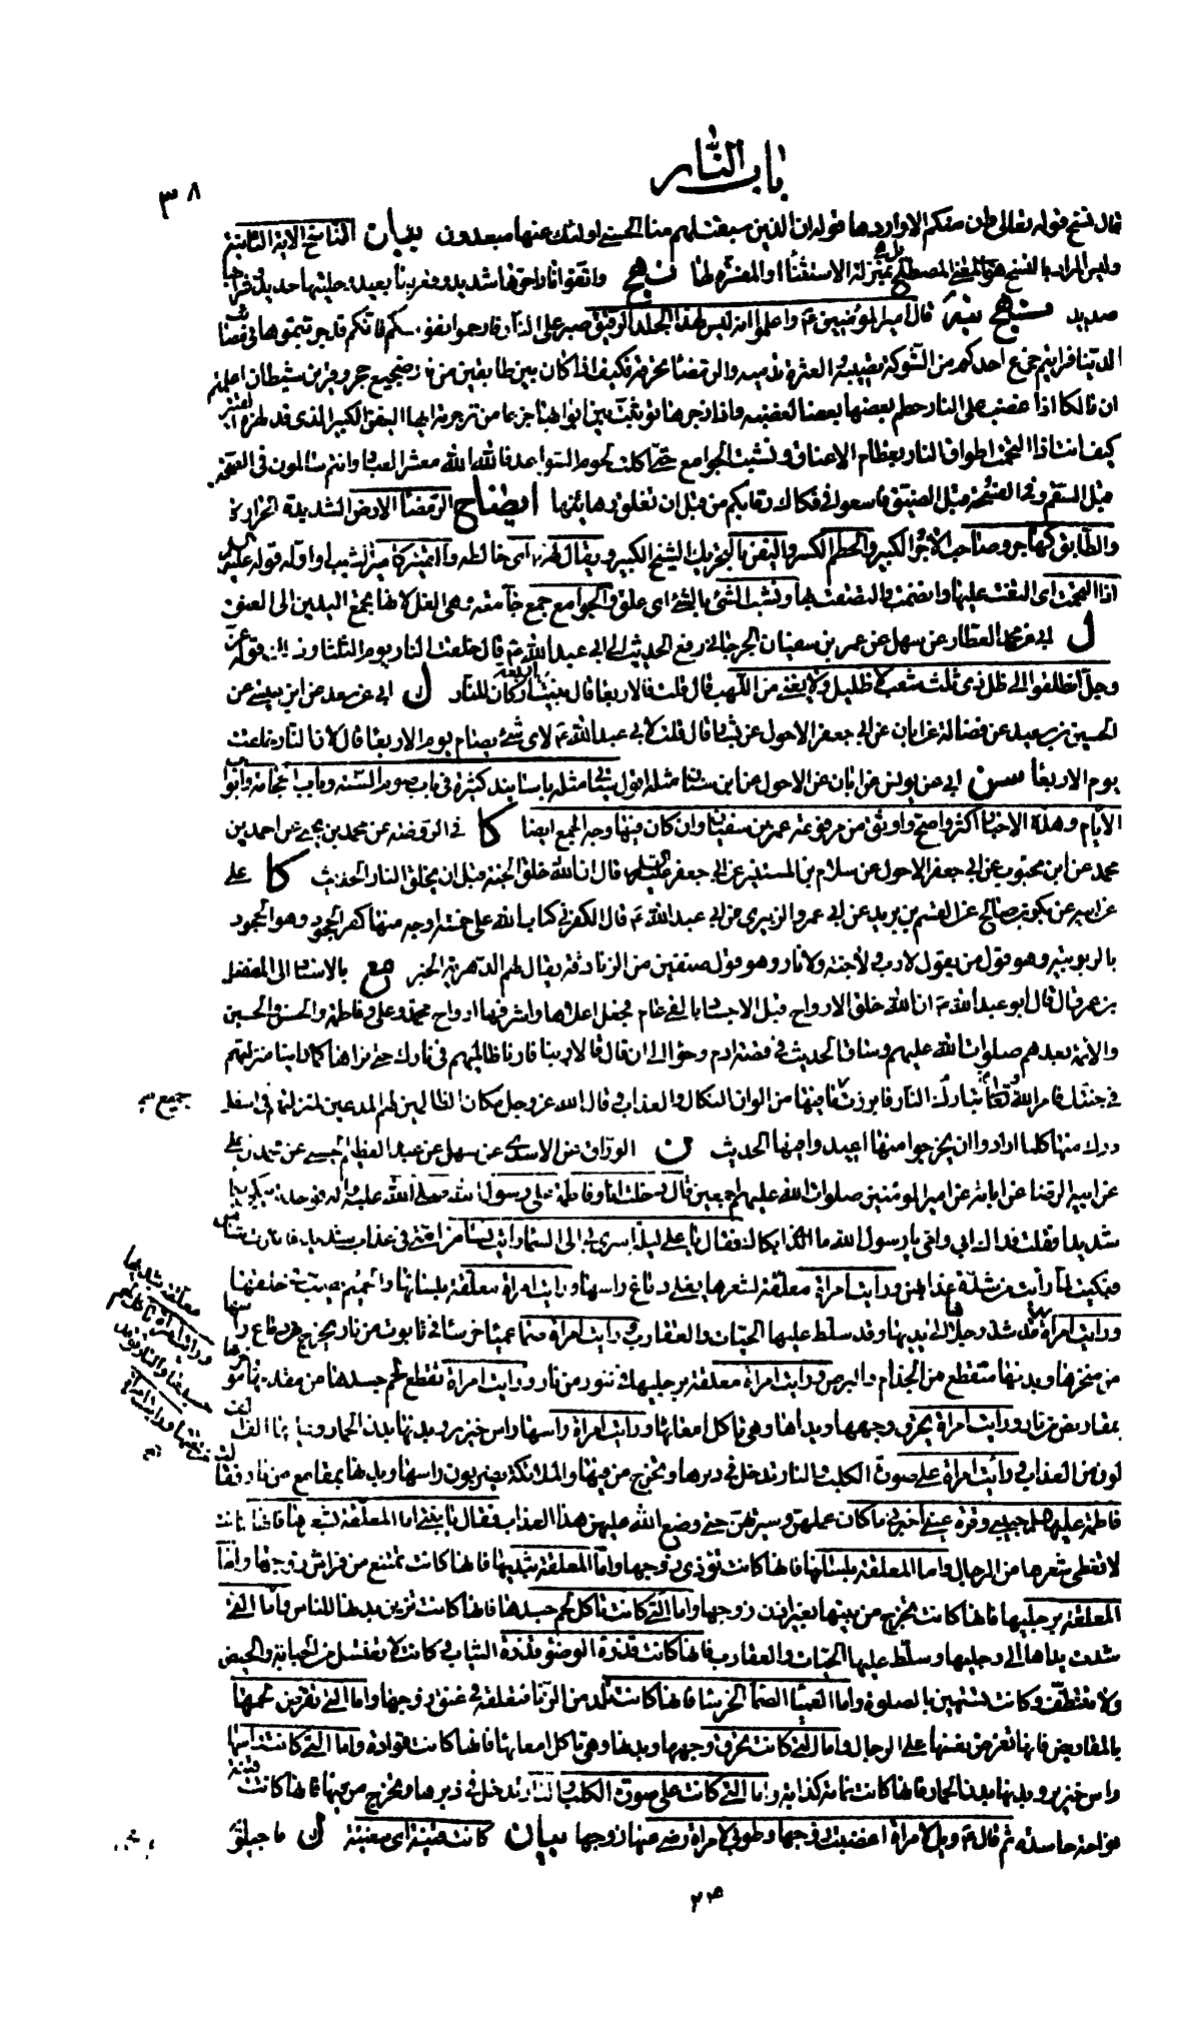 باب النار
٣٨
قال نسخ قوله تعالى وان منكم الا واردها قوله ان الذين سبقت لهم منا الحسنى اولئك عنها مبعدون بيان الناسخ الآية الثانية
وليس المراد بالنسخ هو المعنى المصطلح بل هو بمنزلة الاستثناء او المفسرة لها نهج واتقوا نارا حرها شديد وقعرها بعيد وحليتها حديد وشرابها
صديد نهج قال امير المؤمنين ع واعلموا انه ليس لهذا الجلد الرقيق صبر على النار فارحموا نفوسكم فانكم قد جربتموها في مصائب
الدنيا فرايتم جزع احدكم من الشوكة تصيبه والعثرة تدميه والرمضاء تحرقه فكيف اذا كان بين طابقين من نار ضجيع حجر وقرين شيطان اعلمتم
ان مالكا اذا غضب على النار حطم بعضها بعضا لغضبه واذا زجرها توثبت بين ابوابها جزعا من زجرته ايها اليفن الكبير الذي قد لهزه القتير
كيف انت اذا التحمت اطواق النار بعظام الاعناق ونشبت الجوامع حتى اكلت لحوم السواعد فالله الله معشر العباد وانتم سالمون في الصحة
قبل السقم وفي الفسحة قبل الضيق فاسعوا في فكاك رقابكم من قبل ان تغلق رهائنها ايضاح الرمضاء الارض الشديدة الحرارة
والطابق كهاجر وصاحب الآجر الكبير والحطم الكسر واليفن بالتحريك الشيخ الكبير ويقال لهزه اى خالطه والقتير كامير الشيب او اوله قوله عليه السلم
اذا التحمت اى التفت عليها وانضمت والتصقت بها ونشب الشئ بالشئ اى علق والجوامع جمع جامعة وهى الغل لانها يجمع اليدين الى العنق
ل ابي عن محمد العطار عن سهل عن عمر بن سفيان الجرجاني رفع الحديث الى ابي عبد الله ع قال خلقت النار يوم الثلثا وذلك قوله عز
وجل انطلقوا الى ظل ذى ثلث شعب لا ظليل ولا يغنى من اللهب قال قلت فالاربعا قال بنيت اربعة اركان للنار ل ابي عن سعد عن ابن عيسى عن
الحسين بن سعيد عن فضالة عن ابان عن ابي جعفر الاحول عن بشار قال قلت لابي عبد الله ع لاى شئ يصام يوم الاربعا قال لان النار خلقت
يوم الاربعا سن ابي عن يونس عن ابان عن الاحول عن ابن سنان مثله اقول سيأتي مثله باسانيد كثيرة في باب صوم السنة وباب الحجامة وابواب
الايام وهذه الاخبار اكثر واصح واوثق من مرفوعة عمر بن سفيان وان كان فيها وجه الجمع ايضا كا في الروضة عن محمد بن يحيى عن احمد بن
محمد عن ابن محبوب عن ابي جعفر الاحول عن سلام بن المستنير عن ابي جعفر عليه السلم قال ان الله خلق الجنة قبل ان يخلق النار الحديث كا علي
عن ابيه عن بكر بن صالح عن القسم بن بريد عن ابي عمرو الزبيري عن ابي عبد الله ع قال الكفر في كتاب الله على خمسة اوجه منها كفر الجحود وهو الجحود
بالربوبية وهو قول من يقول لا رب ولا جنة ولا نار وهو قول صنفين من الزنادقة يقال لهم الدهرية الخبر مع بالاسناد الى المفضل
بن عمر قال قال ابو عبد الله ع ان الله خلق الارواح قبل الاجساد بالفي عام فجعل اعلاها واشرفها ارواح محمد وعلي وفاطمة والحسن والحسين
والائمة بعدهم صلوات الله عليهم وساق الحديث في قصة ادم وحوا الى ان قال قالا ربنا فارنا ظالميهم في نارك حتى نراها كما راينا منزلتهم
في جنتك فامر الله تعالى النار فابرزت ما فيها من الوان النكال والعذاب وقال الله عز وجل مكان الظالمين لهم المدعين لمنزلتهم في اسفل
درك منها كلما ارادوا ان يخرجوا منها اعيدوا فيها الحديث ن الوراق عن الاسدي عن سهل عن عبد العظيم الحسني عن محمد بن علي
عن ابيه الرضا عن ابائه عن امير المؤمنين صلوات الله عليهم اجمعين قال دخلت انا وفاطمة على رسول الله صلى الله عليه وآله فوجدته يبكي بكاء
شديدا فقلت فداك ابي وامي يا رسول الله ما الذي ابكاك فقال يا علي ليلة اسري بي الى السماء رايت نساء من امتي في عذاب شديد فانكرت شانهن
فبكيت لما رأيت من شدة عذابهن ورايت امرأة معلقة بشعرها يغلي دماغ راسها ورايت امرأة معلقة بلسانها والحميم يصب في حلقها
ورايت امرأة قد شد رجلاها الى يديها وقد سلط عليها الحيات والعقارب ورايت امرأة صماء عمياء خرساء في تابوت من نار يخرج دماغ راسها
من منخرها وبدنها متقطع من الجذام والبرص ورايت امرأة معلقة برجليها في تنور من نار ورايت امرأة تقطع لحم جسدها من مقدمها ومؤخرها
بمقاريض من نار ورايت امرأة يحرق وجهها ويداها وهي تاكل امعائها ورايت امرأة راسها راس خنزير وبدنها بدن الحمار وعليها الف الف
لون من العذاب ورأيت امرأة على صورة الكلب والنار تدخل في دبرها وتخرج من فيها والملائكة يضربون راسها وبدنها بمقامع من نار فقالت
فاطمة عليها السلم حبيبي وقرة عيني اخبرني ما كان عملهن وسيرتهن حتى وضع الله عليهن هذا العذاب فقال يا بنتي اما المعلقة بشعرها فانها كانت
لا تغطي شعرها من الرجال واما المعلقة بلسانها فانها كانت تؤذي زوجها واما المعلقة بثدييها فانها كانت تمتنع من فراش زوجها واما
المعلقة برجليها فانها كانت تخرج من بيتها بغير اذن زوجها واما التي كانت تاكل لحم جسدها فانها كانت تزين بدنها للناس واما التي
شدت يداها الى رجليها وسلط عليها الحيات والعقارب فانها كانت قذرة الوضوء قذرة الثياب وكانت لا تغتسل من الجنابة والحيض
ولا تتنظف وكانت تستهين بالصلوة واما العمياء الصماء الخرساء فانها كانت تلد من الزنا فتعلقه في عنق زوجها واما التي تقرض لحمها
بالمقاريض فانها تعرض نفسها على الرجال واما التي كانت يحرق وجهها وبدنها وهي تاكل امعائها فانها كانت قوادة واما التي كانت راسها
راس خنزير وبدنها بدن الحمار فانها كانت نمامة كذابة واما التي كانت على صورة الكلب والنار تدخل في دبرها وتخرج من فيها فانها كانت قينة
نواحة حاسدة ثم قال ع ويل لامرأة اغضبت زوجها وطوبى لامرأة رضي عنها زوجها بيان كانت قينة اى مغنية ل ماجيلويه
جميع
معلقة بثدييها
ورايت امرأة تاكل لحم
جسدها والنار توقد
من تحتها ورايت امرأة